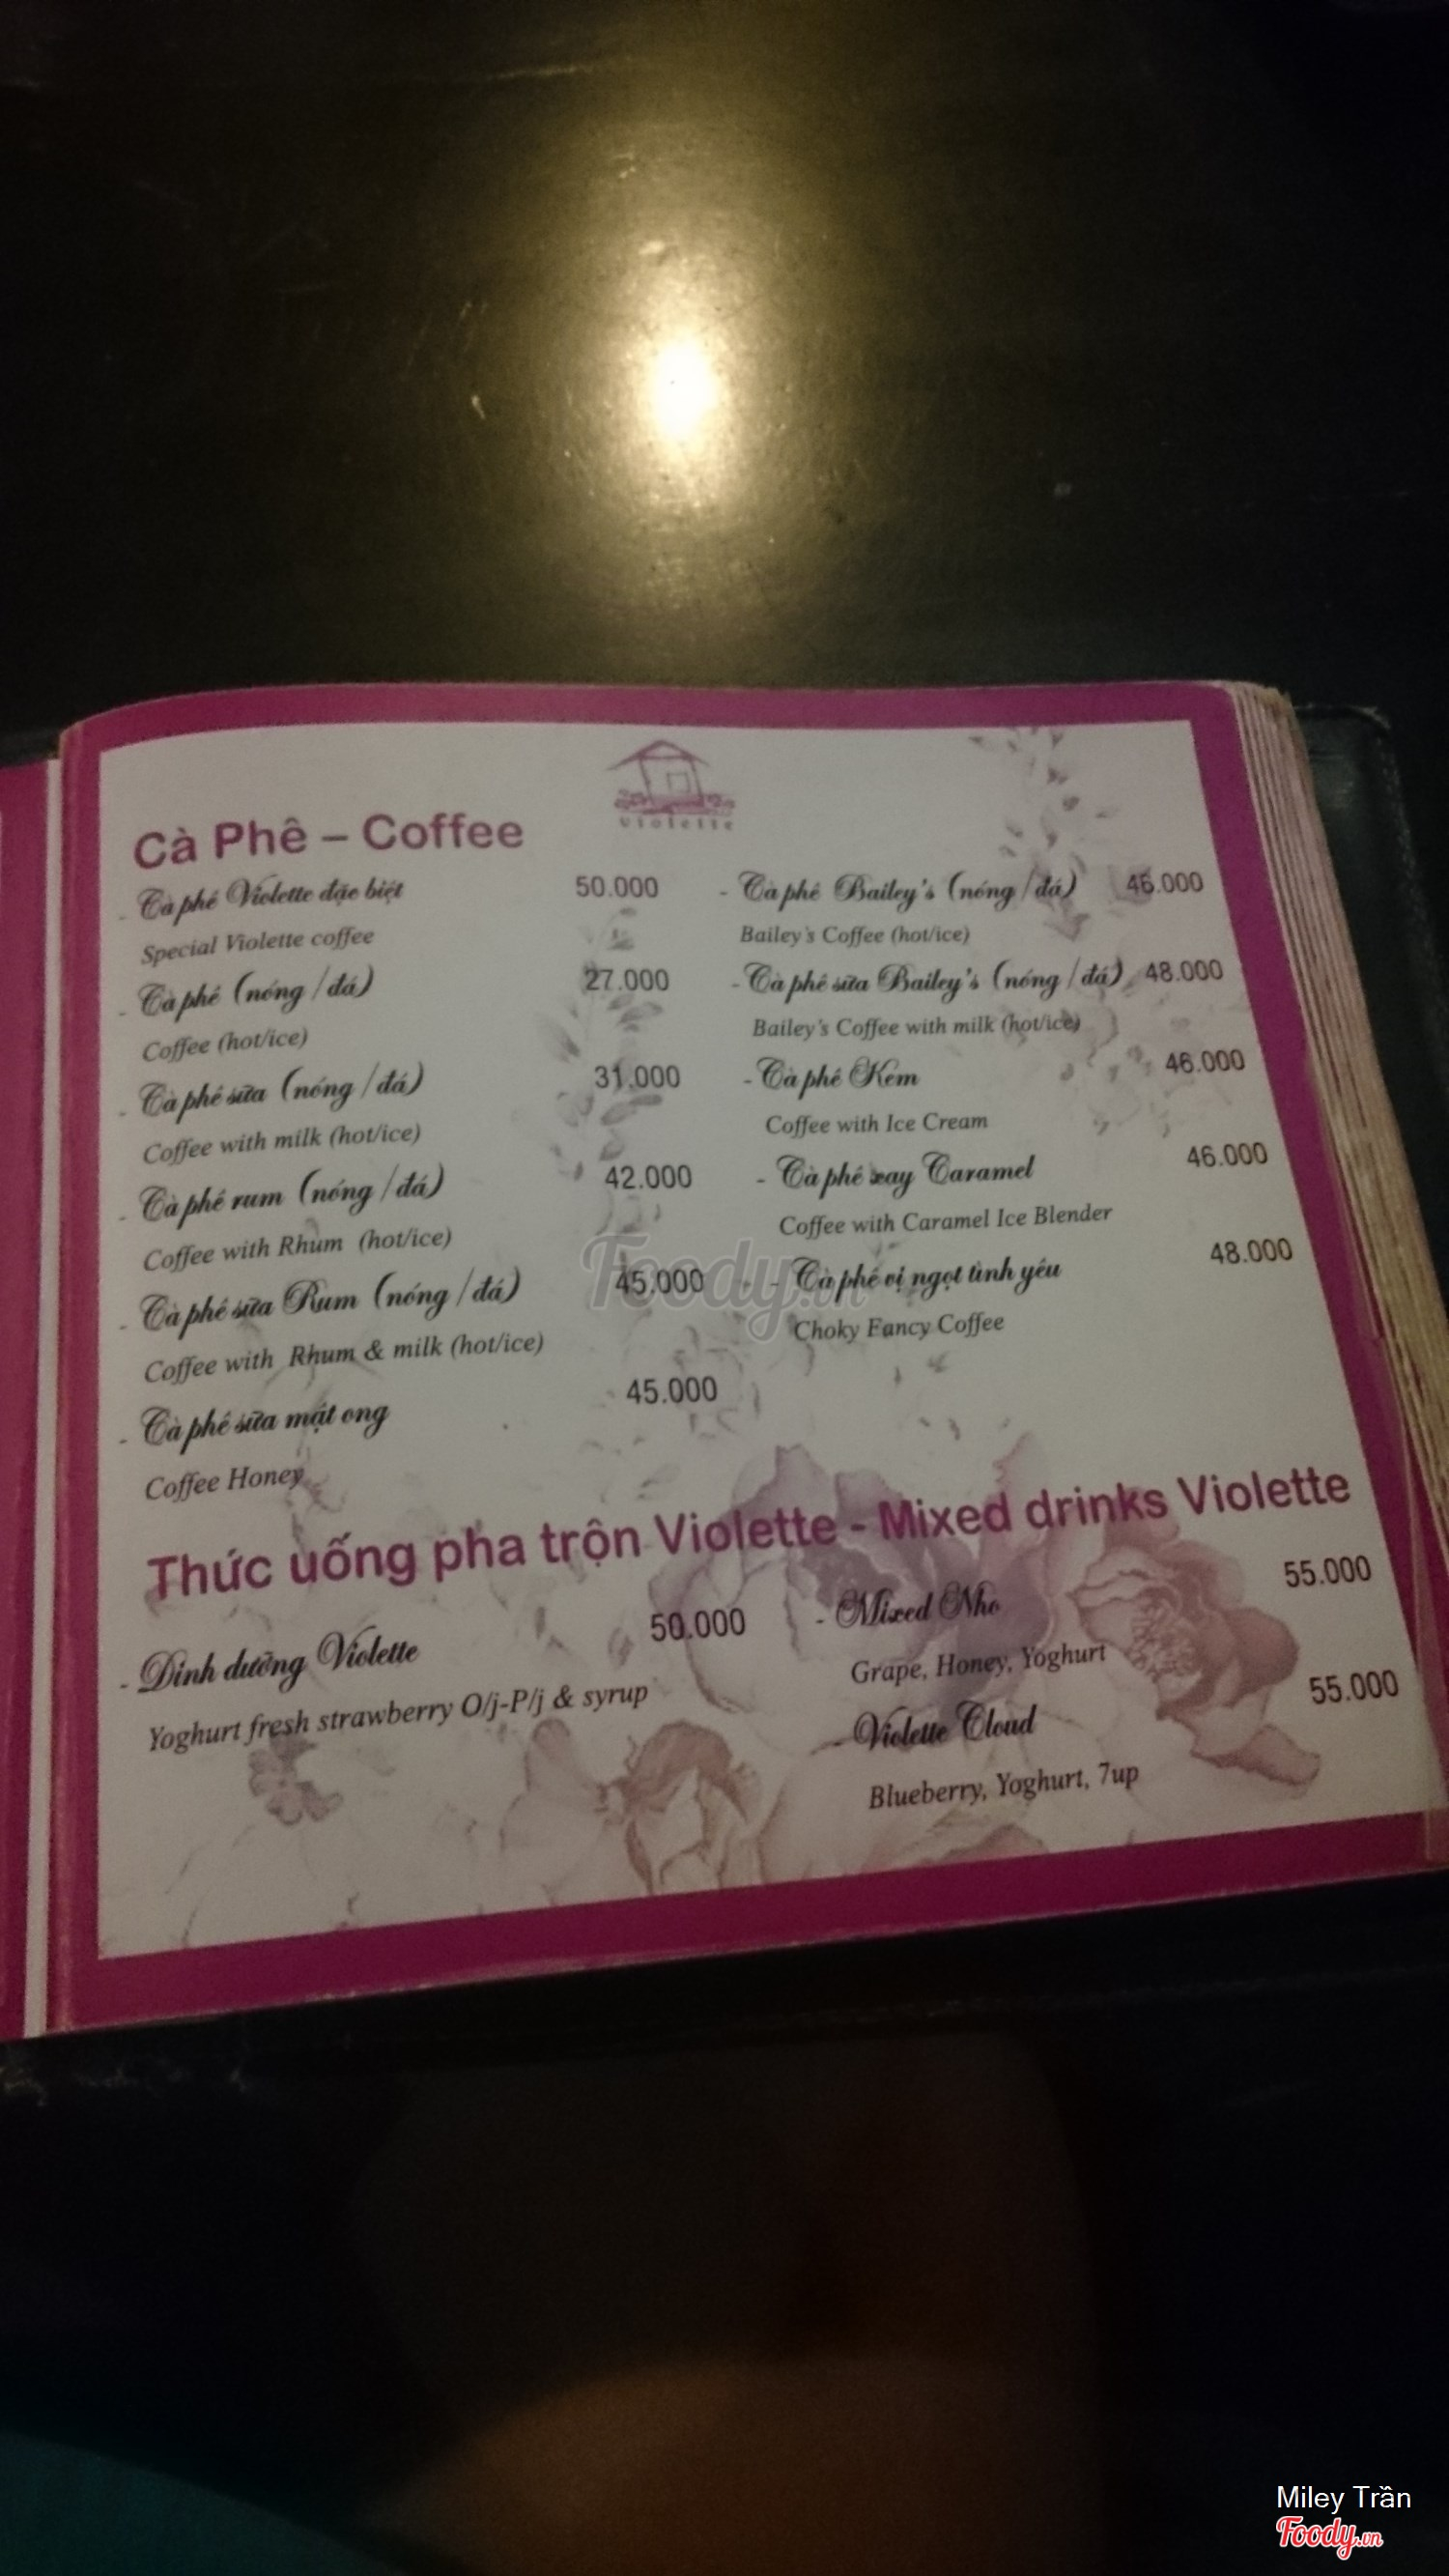 violette
Cà Phê – Coffee
- Cà phê Violette đặc biệt 50.000
Special Violette coffee
- Cà phê (nóng/đá) 27.000
Coffee (hot/ice)
- Cà phê sữa (nóng/đá) 31.000
Coffee with milk (hot/ice)
- Cà phê rum (nóng/đá) 42.000
Coffee with Rhum (hot/ice)
- Cà phê sữa Rum (nóng/đá) 45.000
Coffee with Rhum & milk (hot/ice)
- Cà phê sữa mật ong 45.000
Coffee Honey
- Cà phê Bailey's (nóng/đá) 46.000
Bailey's Coffee (hot/ice)
- Cà phê sữa Bailey's (nóng/đá) 48.000
Bailey's Coffee with milk (hot/ice)
- Cà phê Kem 46.000
Coffee with Ice Cream
- Cà phê xay Caramel 46.000
Coffee with Caramel Ice Blender
- Cà phê vị ngọt tình yêu 48.000
Choky Fancy Coffee
Foody.vn
Thức uống pha trộn Violette - Mixed drinks Violette
- Dinh dưỡng Violette 50.000
Yoghurt fresh strawberry O/j-P/j & syrup
- Mixed Nho 55.000
Grape, Honey, Yoghurt
- Violette Cloud 55.000
Blueberry, Yoghurt, 7up
Miley Trần
Foody.vn